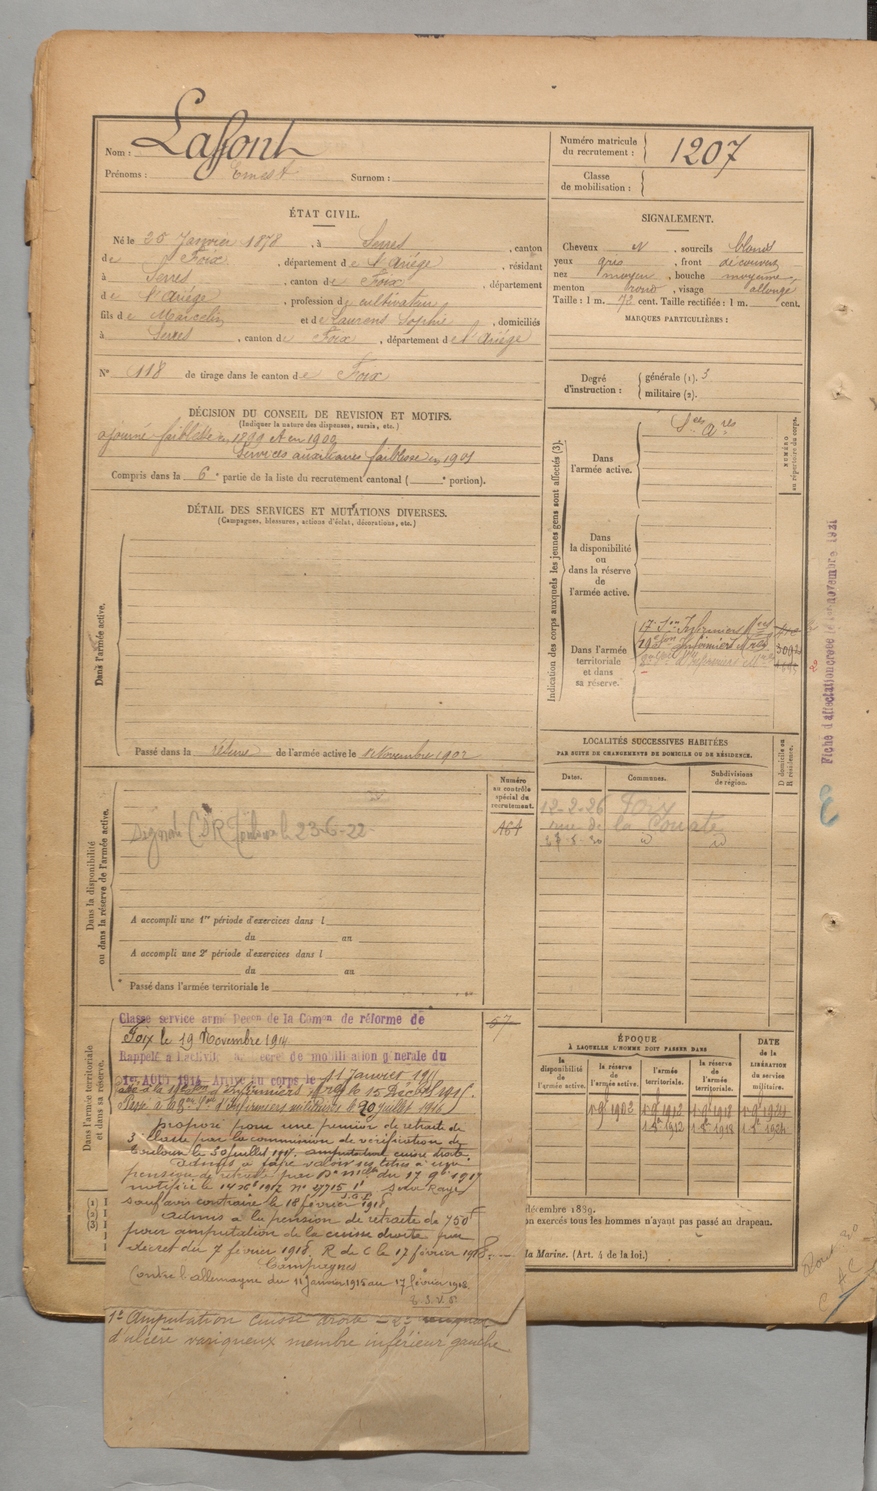 Nom : Laffont
Prénoms : Ernest Surnom :
Numéro matricule du recrutement : 1207
Classe de mobilisation :
ÉTAT CIVIL.
Né le 25 Janvier 1878, à Serres, canton
de Foix, département de l'Ariège, résidant
à Serres, canton de Foix, département
de l'Ariège, profession de cultivateur
fils de Marcelin et de Laurens Sophie, domiciliés
à Serres, canton de Foix, département de l'Ariège
N° 118 de tirage dans le canton de Foix
SIGNALEMENT.
Cheveux N, sourcils blonds
yeux gris, front découvert
nez moyen, bouche moyenne,
menton rond, visage allongé
Taille : 1 m. 72 cent. Taille rectifiée : 1 m. cent.
MARQUES PARTICULIÈRES :
Degré d'instruction : générale (1). 3
militaire (2).
DÉCISION DU CONSEIL DE REVISION ET MOTIFS.
(Indiquer la nature des dispenses, sursis, etc.)
ajourné faiblesse en 1899 et en 1900
Services auxiliaires faiblesse en 1901
Compris dans la 6e partie de la liste du recrutement cantonal ( e portion).
DÉTAIL DES SERVICES ET MUTATIONS DIVERSES.
(Campagnes, blessures, actions d'éclat, décorations, etc.)
Dans l'armée active.
Passé dans la réserve de l'armée active le 1 Novembre 1902
Indication des corps auxquels les jeunes gens sont affectés (3).
NUMÉRO au répertoire du corps.
Dans l'armée active.
Dans la disponibilité ou dans la réserve de l'armée active.
Dans l'armée territoriale et dans sa réserve.
17e Son Infirmiers Mres
Fiche d'affectation créée novembre 1921
LOCALITÉS SUCCESSIVES HABITÉES
PAR SUITE DE CHANGEMENTS DE DOMICILE OU DE RÉSIDENCE.
Dates. Communes. Subdivisions de région. D domicile ou R résidence.
12-2-26 Foix
rue de la
Dans la disponibilité ou dans la réserve de l'armée active.
Numéro au contrôle spécial du recrutement.
464
CDR Toulouse le 23-6-22
A accompli une 1re période d'exercices dans l
du au
A accompli une 2e période d'exercices dans l
du au
Passé dans l'armée territoriale le
Dans l'armée territoriale et dans sa réserve.
67
Classé service armé Décon de la Comon de réforme de
Foix le 19 Novembre 1914
Rappelé à l'activité Décret de mobilisation générale du
1er AOUT 1914. Arrivé au corps le 11 janvier 1915
Infirmiers Mres le 15 Décembre 1915.
Passé à la d'Infirmiers militaires le 20 juillet 1916
proposé pour une pension de retraite de
3 classe par la commission de vérification de
Toulouse le 30 juillet 1917. amputation cuisse droite.
Admis à faire valoir ses titres à une
pension de retraite par du 17 9bre 1917
notifiée le 14 Xbre 1917 N° Rayé
sauf avis contraire le 18 février 1918
Admis à la pension de retraite de 750f
pour amputation de la cuisse droite par
décret du 7 février 1918. R de C le 17 février 1918
Campagnes
Contre l'allemagne du 11 Janvier 1915 au 17 février 1918.
1° Amputation cuisse droite – 2°
d'ulcère variqueux membre inférieur gauche
ÉPOQUE
À LAQUELLE L'HOMME DOIT PASSER DANS
la disponibilité de l'armée active. la réserve de l'armée active. l'armée territoriale. la réserve de l'armée territoriale.
DATE de la LIBÉRATION du service militaire.
1 9e 1902 1 9e 1912 1 9e 1918 1 9e 1924
1 8e 1912 1 8e 1918 1 8e 1924
décembre 1889.
on exercés tous les hommes n'ayant pas passé au drapeau.
la Marine. (Art. 4 de la loi.)